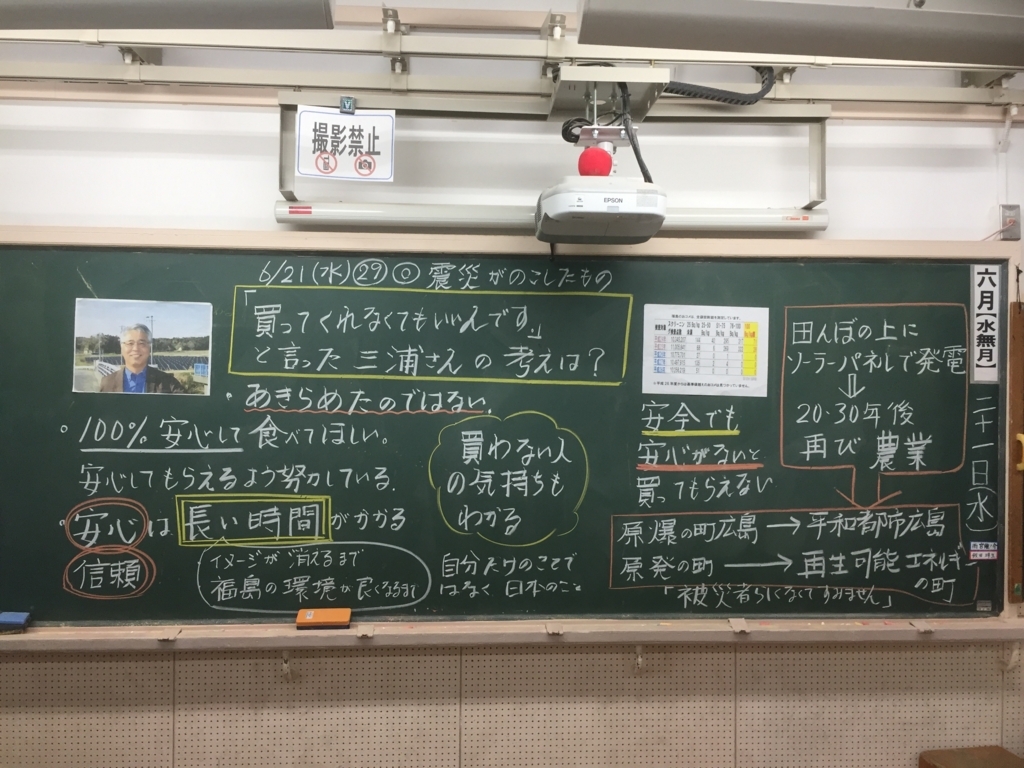 撮影禁止
EPSON
6/21(水)㉙◎ 震災がのこしたもの
「買ってくれなくてもいいんです。」
と言った三浦さんの考えは？
・あきらめたのではない。
・100%安心して食べてほしい。
安心してもらえるよう努力している。
・安心は長い時間がかかる
信頼
イメージが消えるまで
福島の環境が良くなるまで
買わない人
の気持ちも
わかる
自分だけのことで
はなく日本のこと
安全でも
安心がないと
買ってもらえない
田んぼの上に
ソーラーパネルで発電
20・30年後
再び農業
原爆の町広島→平和都市広島
原発の町→再生可能エネルギー
の町
「被災者らしくなくてすみません」
六月【水無月】
二十一日(水)